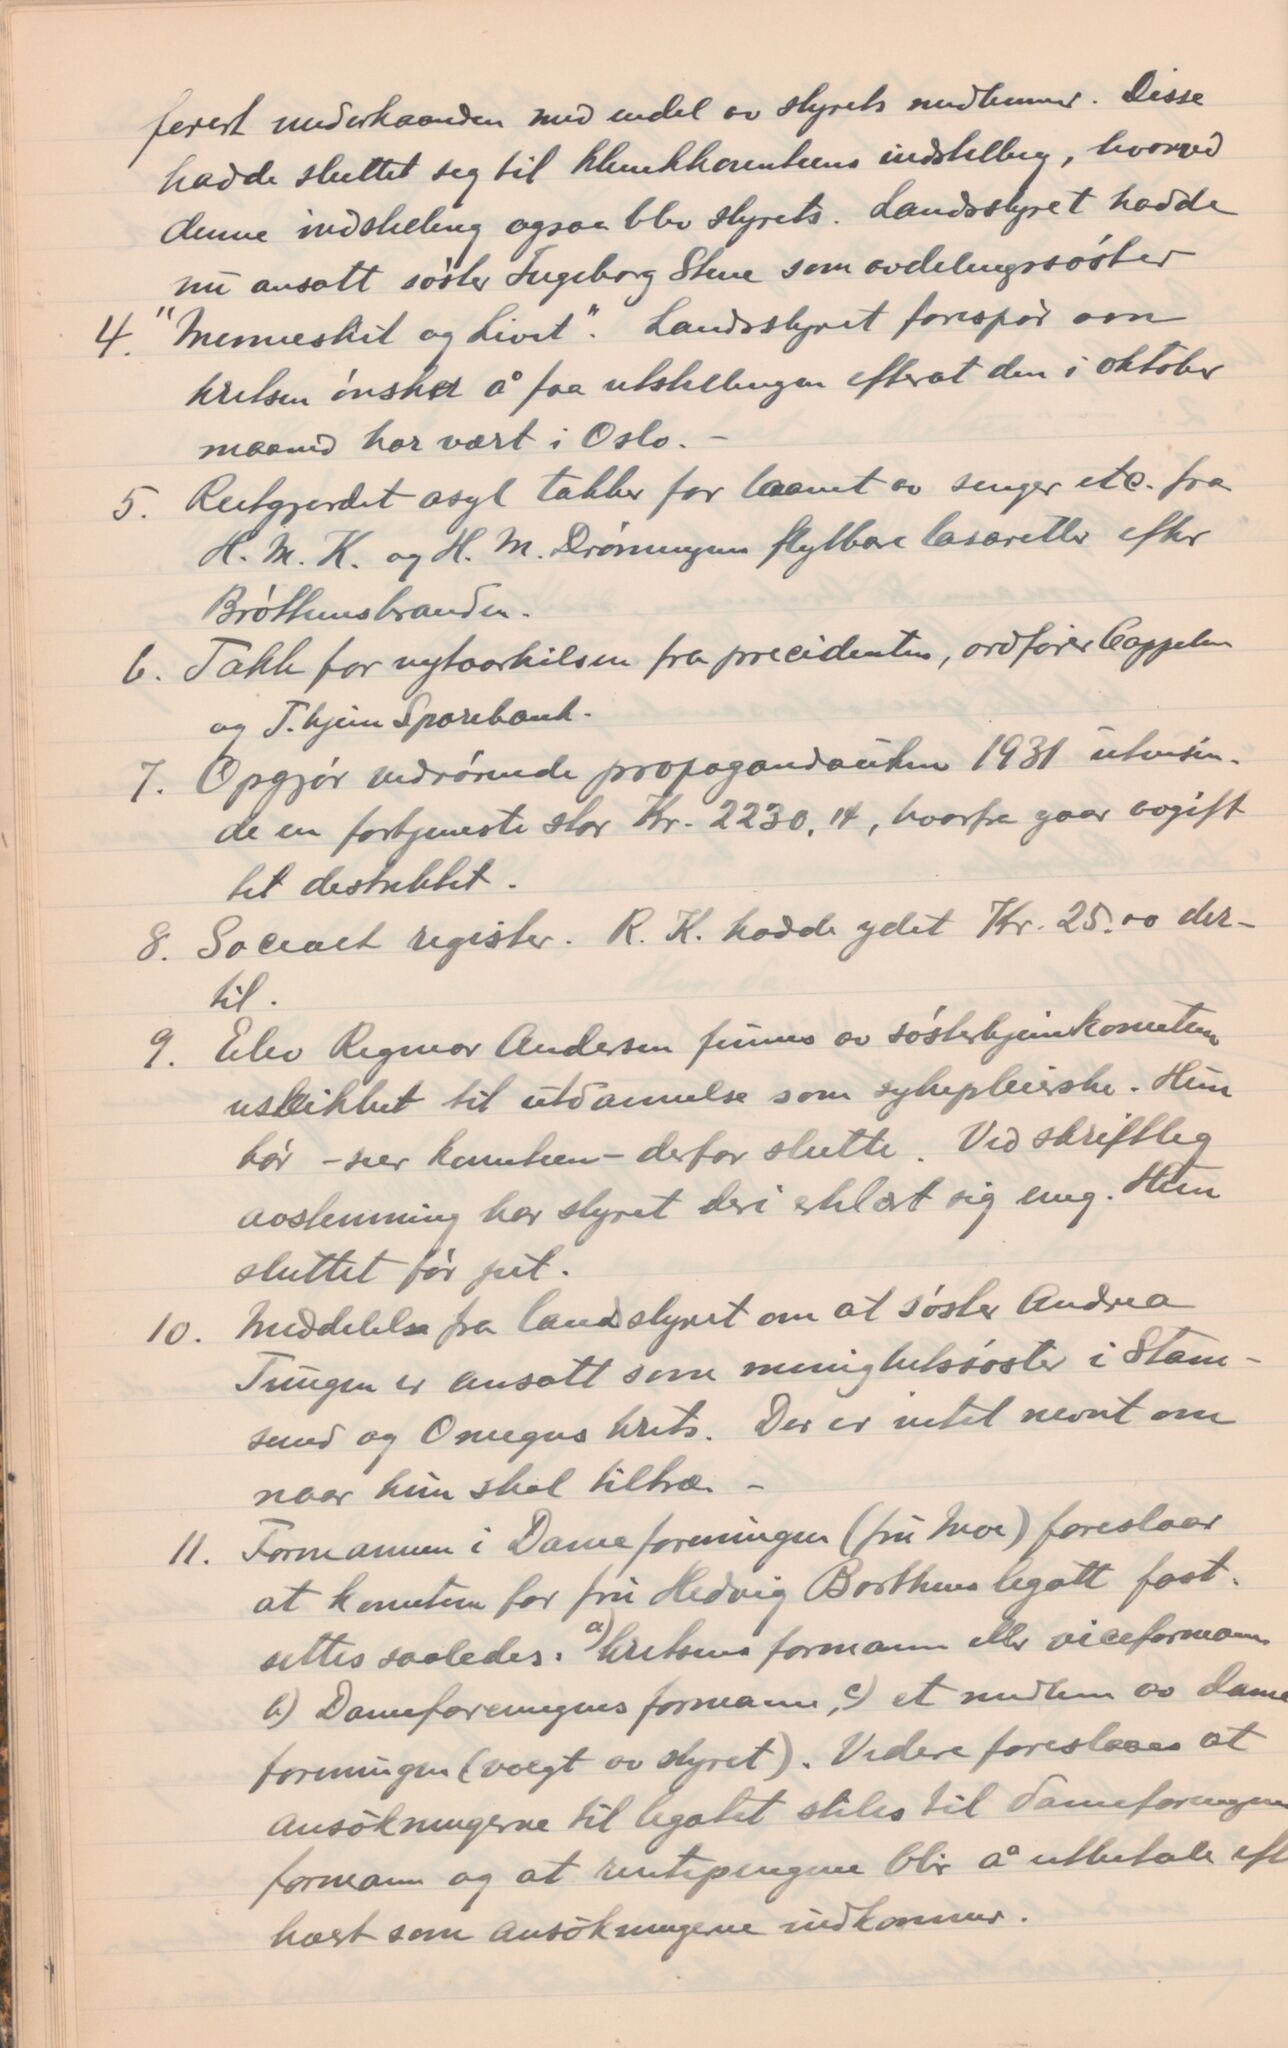 ferert underhaanden med endel av styrets medlemmer. Disse
hadde sluttet seg til klinikkomiteens indstilling, hvorved
denne indstilling ogsaa blev styrets. Landsstyret hadde
nu ansatt søster Ingeborg Stene som avdelingssøster
4. "Mennesket og Livet". Landsstyret forespør om
kretsen ønsker å faa utstillingen efterat den i oktober
maaned har vært i Oslo. -
5. Reitgjerdet asyl takker for laanet av senger etc. fra
H. M. K. og H. M. Dronningens flytbare lasaretter efter
Brøttemsbranden.
6. Takk for nytaarhilsen fra precidenten, ordfører Cappelen
og T.hjem Sparebank.
7. Opgjør vedrørende propagandauken 1931 utvisen-
de en fortjeneste stor Kr. 2230,14, hvorfra gaar avgift
til destriktet.
8. Socialt register. R. K. hadde ydet Kr. 25.00 der-
til.
9. Elev Ragmor Andersen finnes av søsterhjemkomiteen
uskikket til utdannelse som sykepleierske. Hun
bør - sier komiteen - derfor slutte. Ved skriftlig
avstemming har styret deri erklært sig enig. Hun
sluttet før jul.
10. Meddelelse fra landsstyret om at søster Andrea
Tungen er ansatt som menighetssøster i Stam-
sund og Omegns krets. Der er intet nevnt om
naar hun skal tiltræ. -
11. Formannen i Dameforeningen (fru Moe) foreslaar
at komiteen for fru Hedvig Borthens legatt fast-
settes saaledes. a) kretsens formann eller viceformann
b) Dameforeningens formann, c) et medlem av Dame
foreningen (valgt av styret). Videre foreslaaes at
ansøkningerne til legatet stiles til dameforeningens
formann og at rentepengene blir å utbetale eft
hvert som ansøkningerne indkommer.